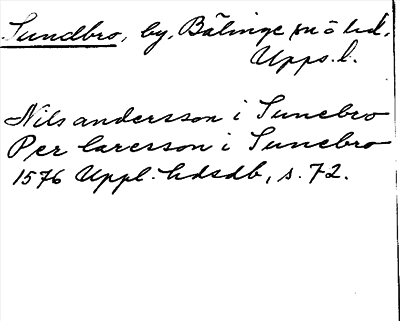 Sundbro, by, Bälinge sn o hd.
Upps. l.
Nils andersson i Sunebro
Per larersson i Sunebro
1576 Uppl. hdsdb, s. 72.